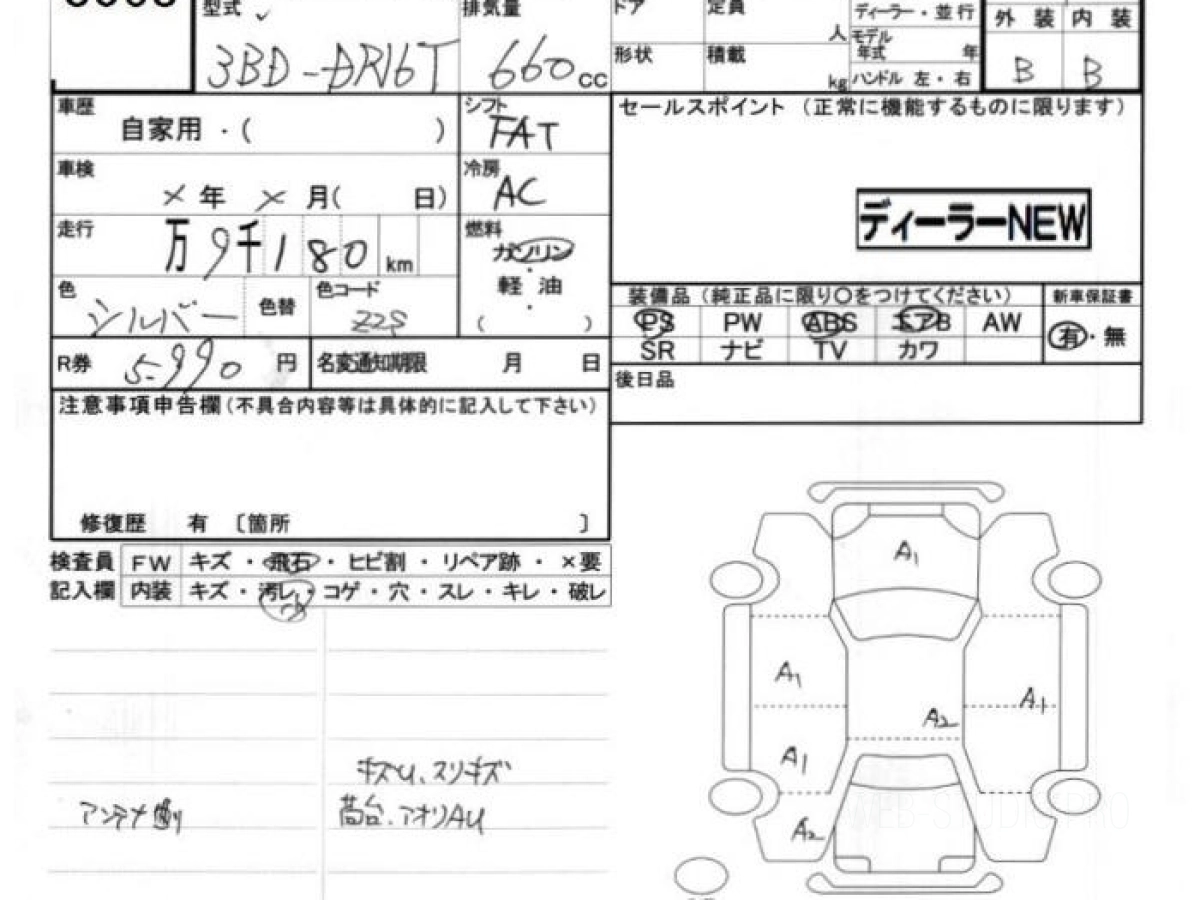 型式 排気量 ドア 定員 人 ディーラー・並行 外装 内装
3BD-DR16T 660 cc 形状 積載 kg モデル年式 年 ハンドル 左・右 B B
車歴 自家用・( ) シフト FAT セールスポイント (正常に機能するものに限ります)
車検 × 年 × 月( 日) 冷房 AC
走行 万 9千180 km 燃料 ガソリン ディーラーNEW
軽油
色 シルバー 色替 色コード Z2S ( )
装備品 (純正品に限り○をつけてください) 新車保証書
PS PW ABS エアB AW 有・無
SR ナビ TV カワ
R券 5.990 円 名変通知期限 月 日
後日品
注意事項申告欄(不具合内容等は具体的に記入して下さい)
修復歴 有 〔箇所 〕
検査員 FW キズ・飛石・ヒビ割・リペア跡・×要
記入欄 内装 キズ・汚レ・コゲ・穴・スレ・キレ・破レ
小
A1
A1 A1
A2
A1
A2
キズU、スリキズ
アンテナ
荷台、アオリAU
WEB-STUDIO.PRO